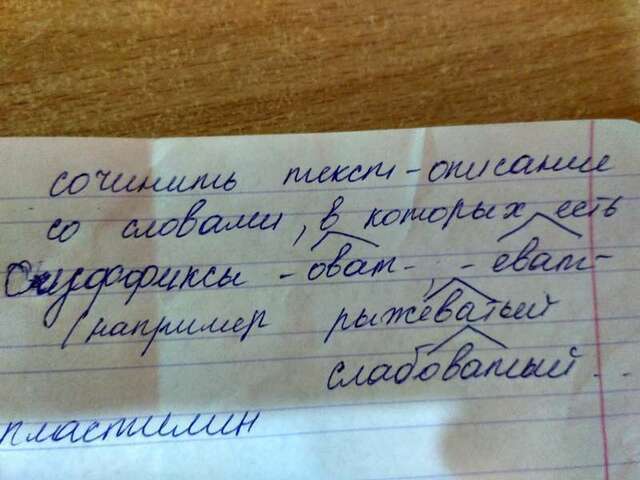 сочинить текст-описание
со словами, в которых есть
суффиксы -оват-, -еват-
(например рыжеватый
слабоватый...
пластилин